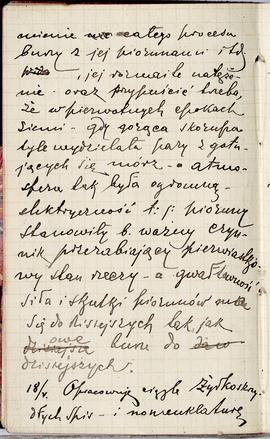 mienie całego procesu
burzy z jej piorunami itd
, jej rozmaite natęże-
nie - oraz przypuścić trzeba,
że w pierwotnych epokach
Ziemi - gdy gorąca skorupa
tyle wydzielała pary z gotu-
jących się mórz - a atmo-
sfera tak była ogromną -
elektryczność t. j. pioruny
stanowiły b. ważny czyn-
nik przerabiający pierwiastko-
wy stan rzeczy - a gwałtowność
siła i skutki piorunów ma
się do dzisiejszych tak, jak
owe
dzisiejsze burze do
dzisiejszych.
18/V. Opracowuję ciągle
Spis - i nomenklaturę